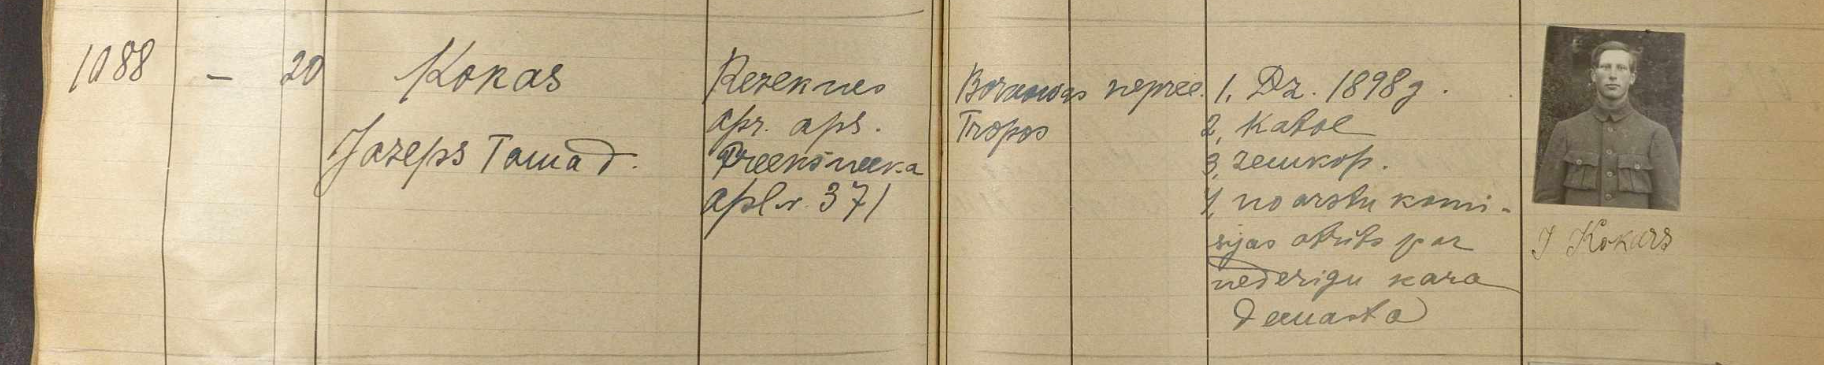 1088 — 20 Kokas
Jazeps Toma d.
Rezeknes
apr. aps.
Preekšneeka
apl. № 371
Borowas
Tropos
nepree.
1, Dz. 1898 g.
2, Katol
3, zemkop.
4, no arstu komi-
sijas atrits par
nederigu kara
deenasta
J Kokars